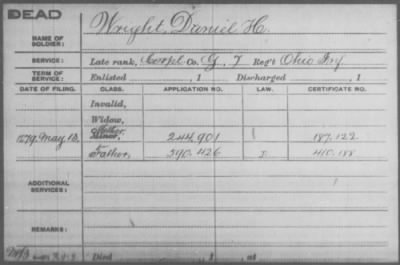 DEAD
Wright, Daniel H.
NAME OF SOLDIER:
SERVICE: Late rank, Corpl Co. G, 7 Reg't Ohio Inf.
TERM OF SERVICE: Enlisted , 1 Discharged , 1
DATE OF FILING. CLASS. APPLICATION NO. LAW. CERTIFICATE NO.
Invalid,
Widow,
Mother
1879. May 13. Minor, 244,901 187.122
Father, 590.426 J. 410.188
ADDITIONAL SERVICES:
REMARKS:
Died , 1 , at